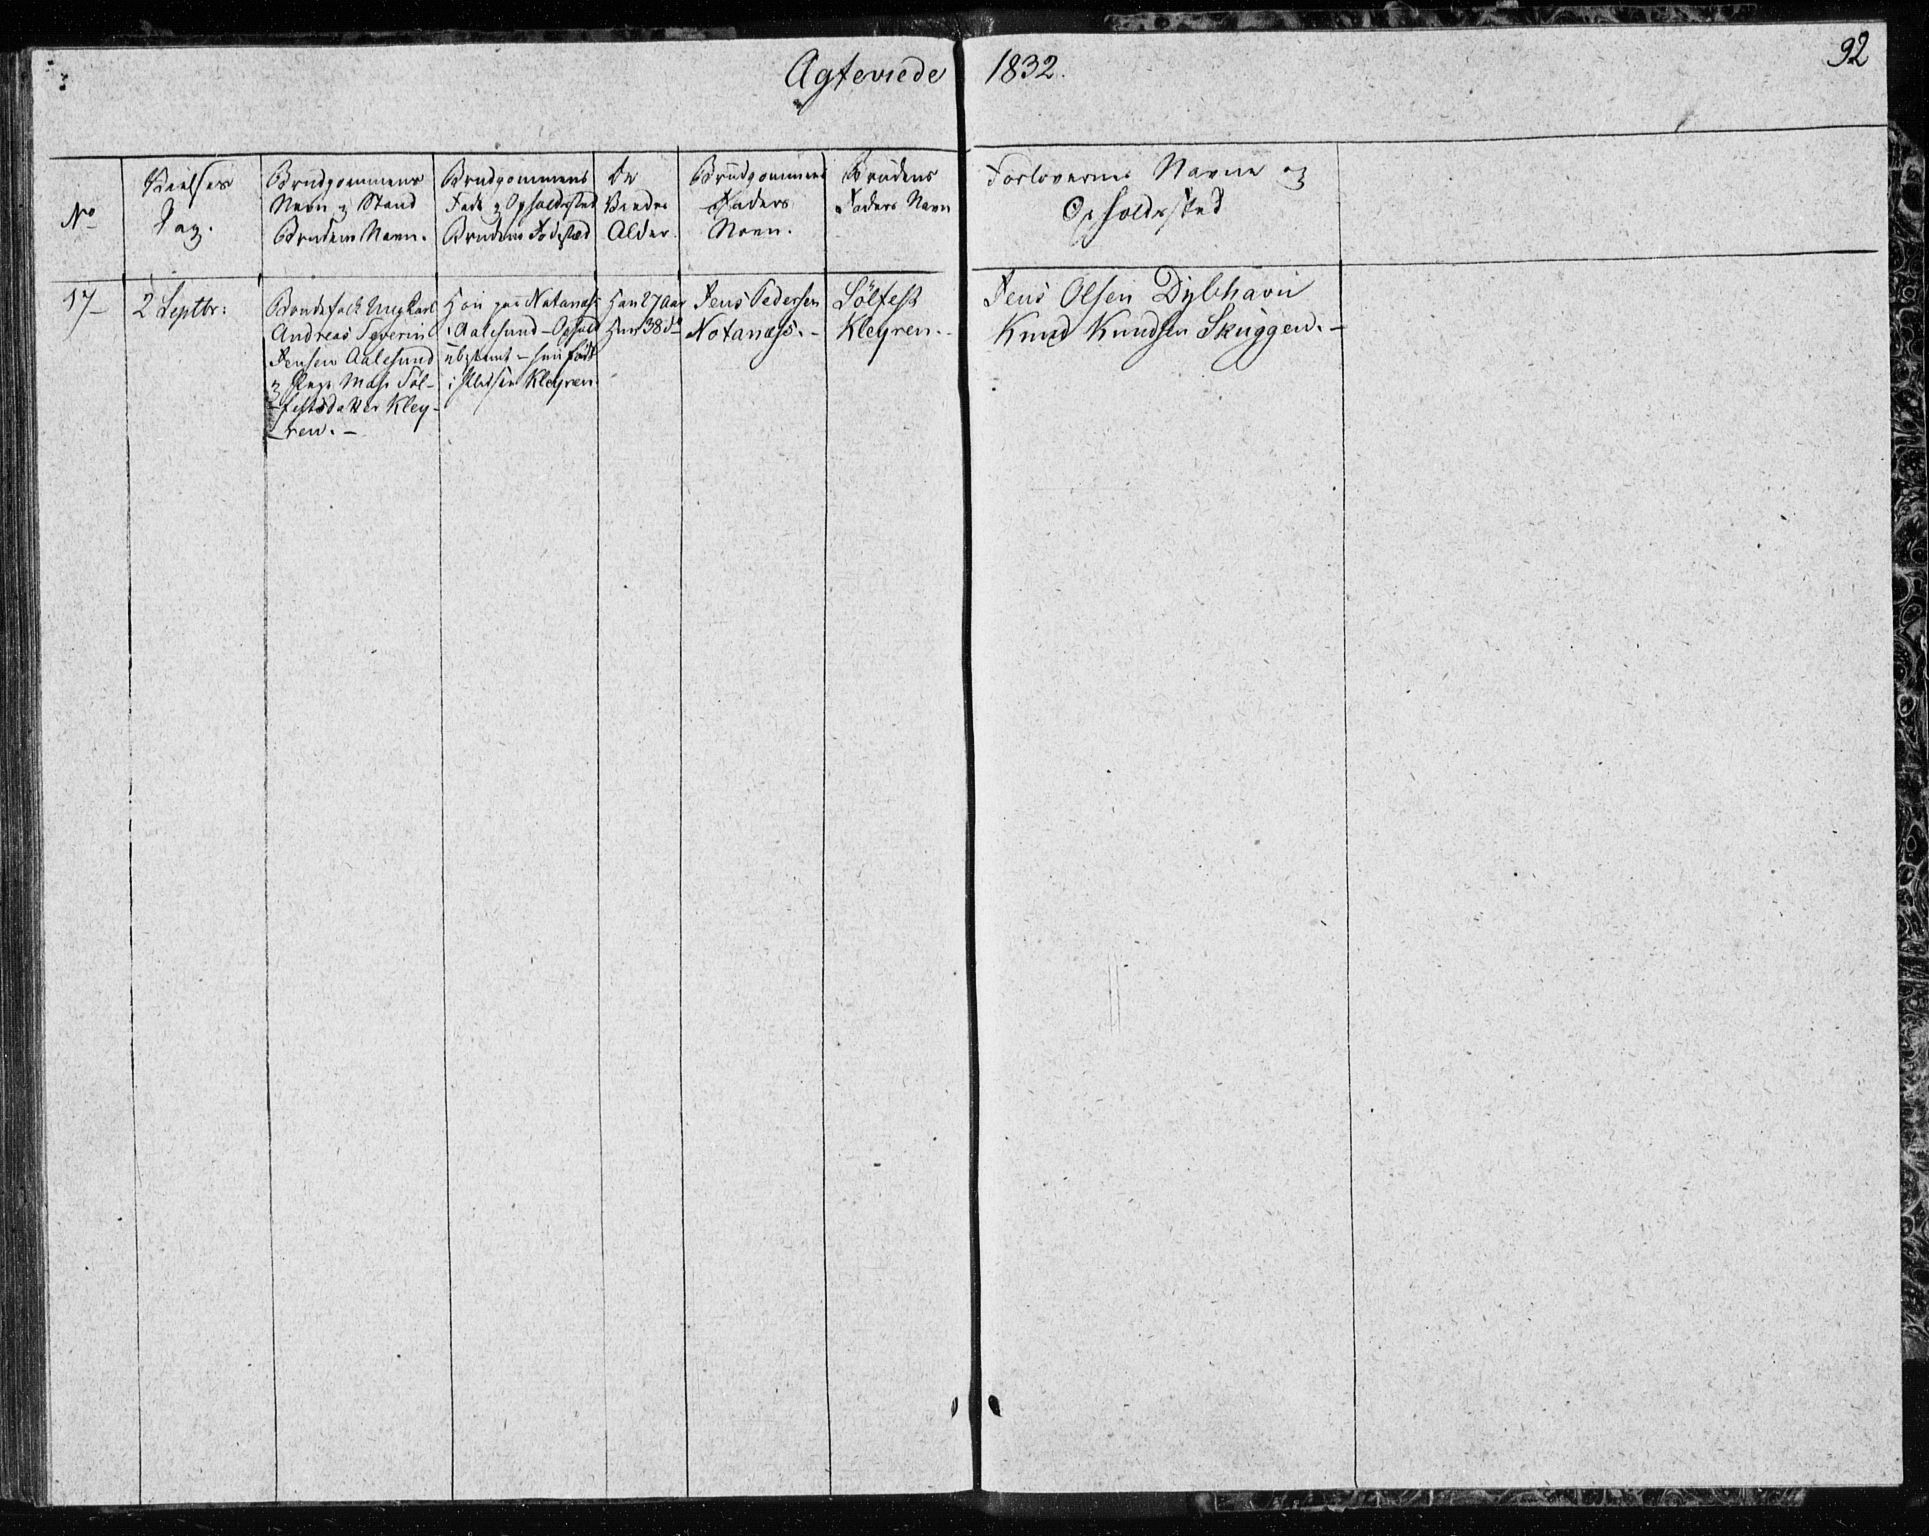 Agteviede 1832.
92
No
Vielses
Dag.
Brudgommens
Navn og Stand
Brudens Navn.
Brudgommens
Føde og Opholdssted
Brudens Fødested
De
Viedes
Alder.
Brudgommens
Faders
Navn.
Brudens
Faders Navn
Forlovernes Navne og
Opholdssted
17
2 Septbr:
Bondefolk Ungkarl
Andreas Severin
Jensen Aalesund
og Pige Søl-
festsdatter Kley-
ren. -
Notanæss
Aalesund - Ophold
ubestemt - hun født
i Kleyren
Han 27 Aar
Hun 38 do
Jens Pedersen
Notanæss. -
Sølfest
Kleyren. -
Jens Olsen Dybhavn
Knud Knudsen Skuggen. -